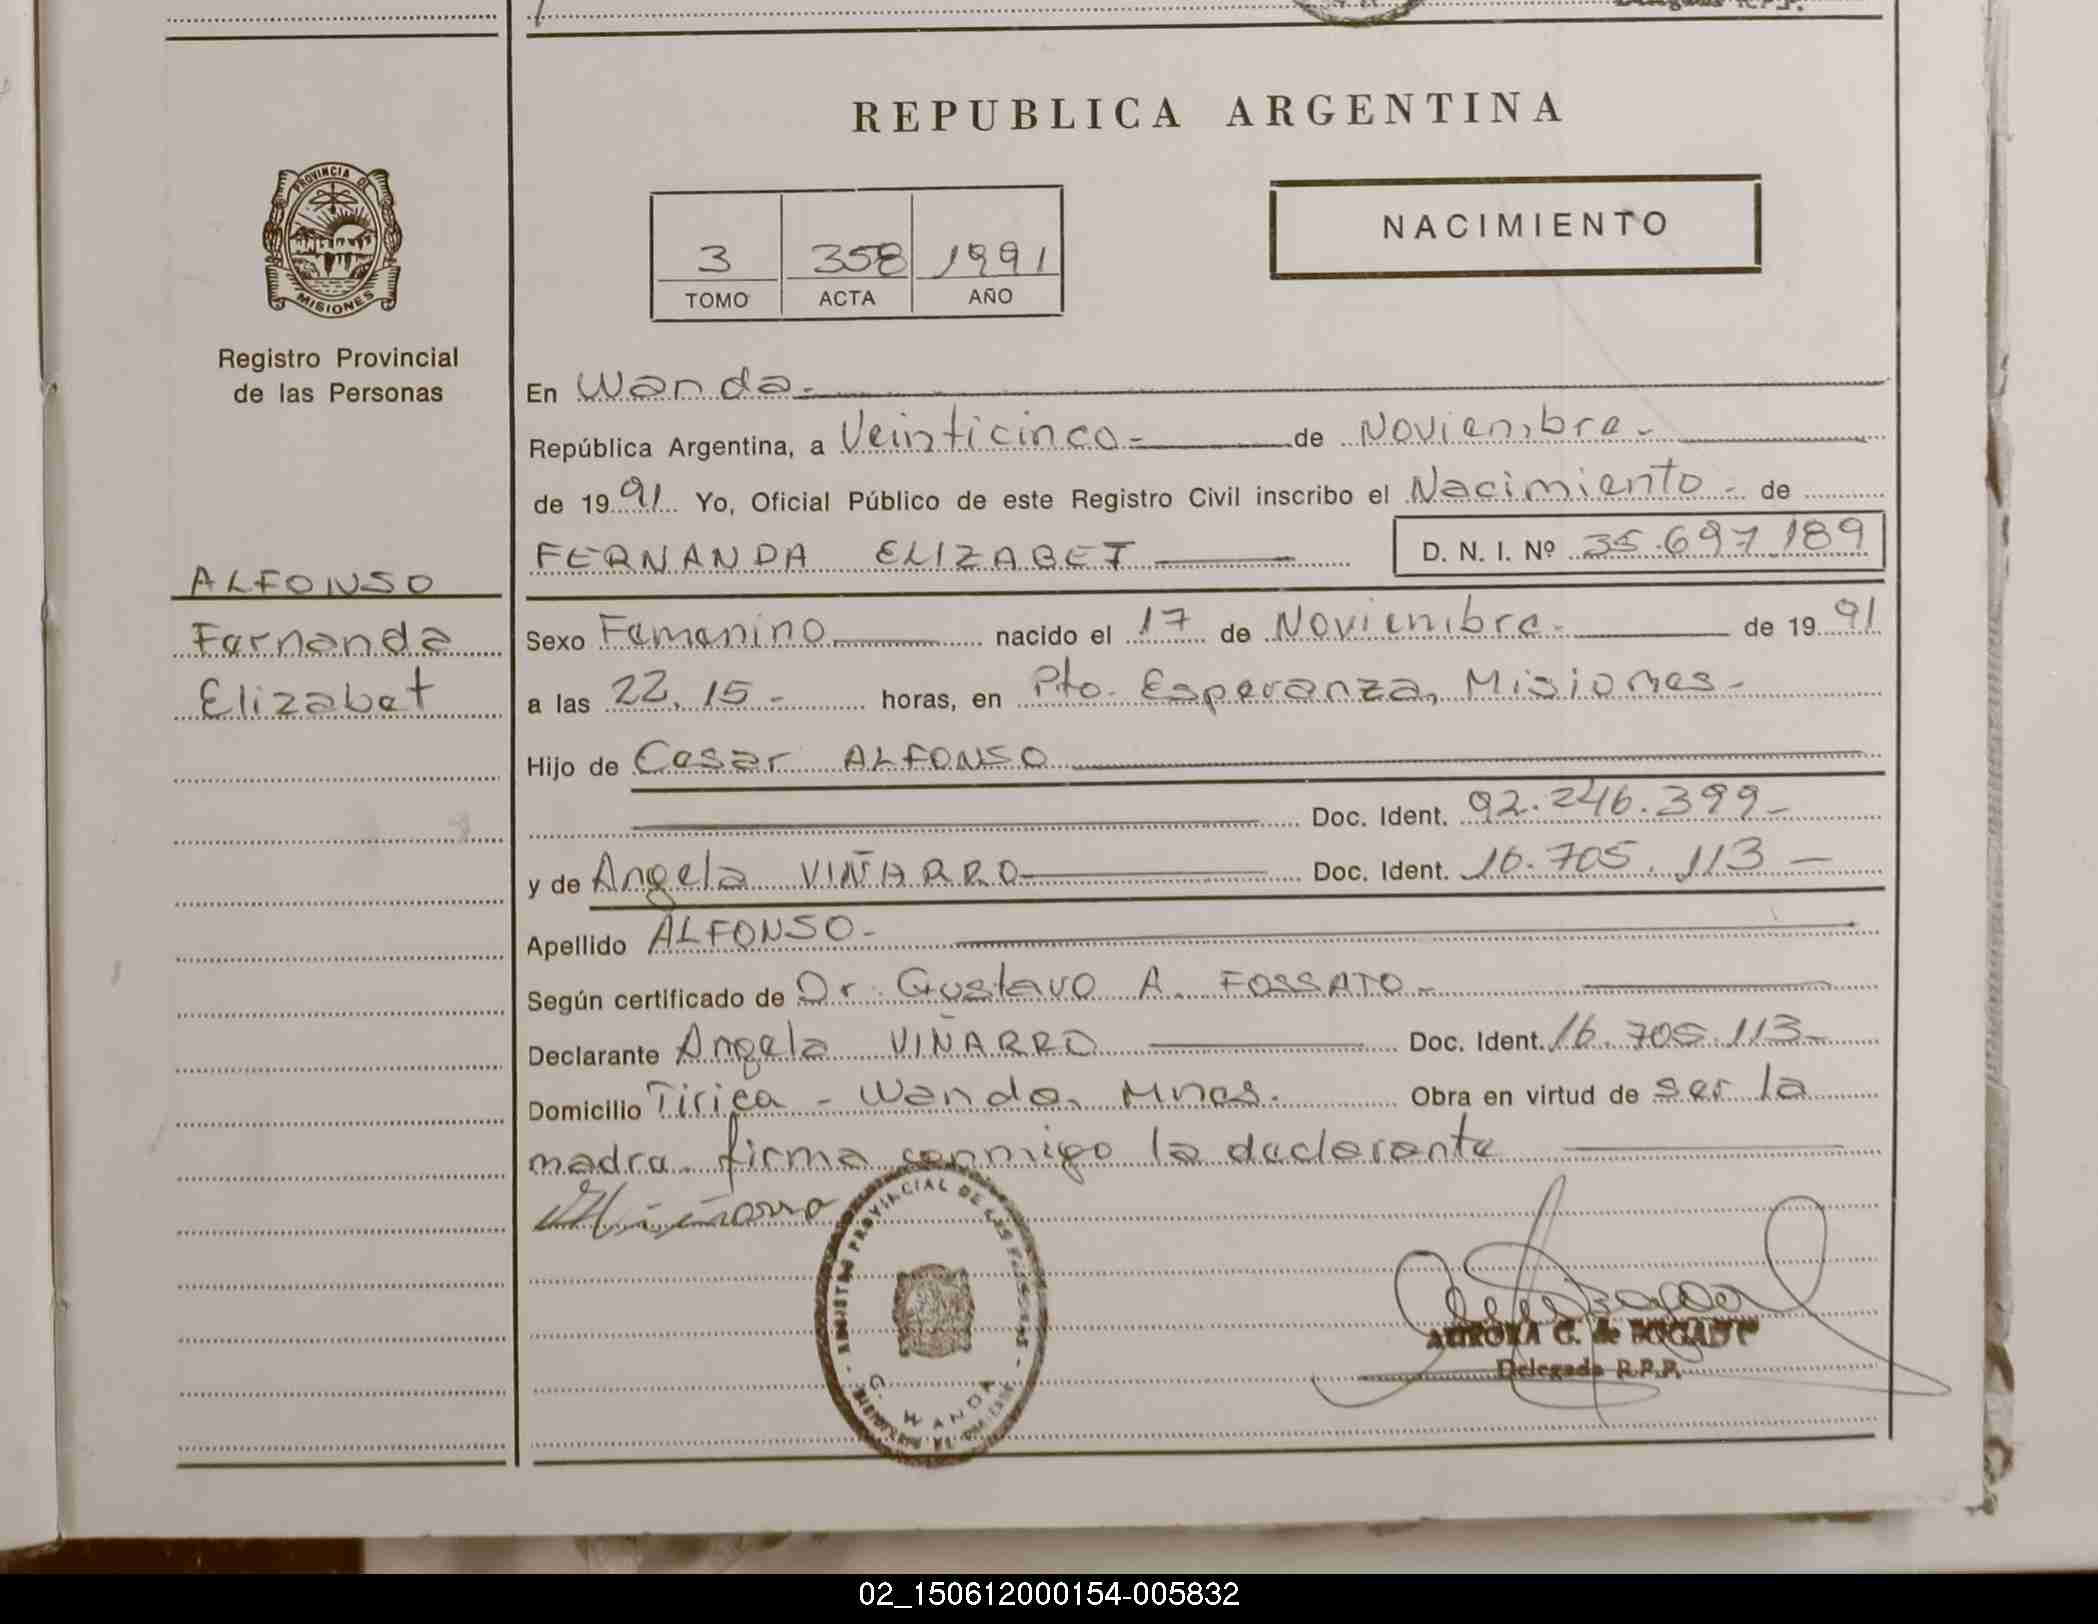 REPUBLICA ARGENTINA
PROVINCIA DE
MISIONES
Registro Provincial
de las Personas
NACIMIENTO
3 358 1991
TOMO ACTA AÑO
En Wanda.-
República Argentina, a Veinticinco.- de Noviembre.-
de 1991 Yo, Oficial Público de este Registro Civil inscribo el Nacimiento.- de
FERNANDA ELIZABET D. N. I. Nº 35.697.189
ALFONSO
Fernanda
Elizabet
Sexo Femenino nacido el 17 de Noviembre.- de 1991
a las 22.15.- horas, en Pto. Esperanza, Misiones.-
Hijo de Cesar ALFONSO
Doc. Ident. 92.246.399.-
y de Angela VIÑARRO Doc. Ident. 16.705.113 -
Apellido ALFONSO.-
Según certificado de Dr. Gustavo A. FOSSATO.-
Declarante Angela VIÑARRO Doc. Ident. 16.705.113.-
Domicilio Tirica - Wanda, Mnes. Obra en virtud de ser la
madre. firma conmigo la declarante
REGISTRO PROVINCIAL DE LAS PERSONAS
WANDA
AURORA G. de BOGADO
Delegada R.P.P.
02_150612000154-005832